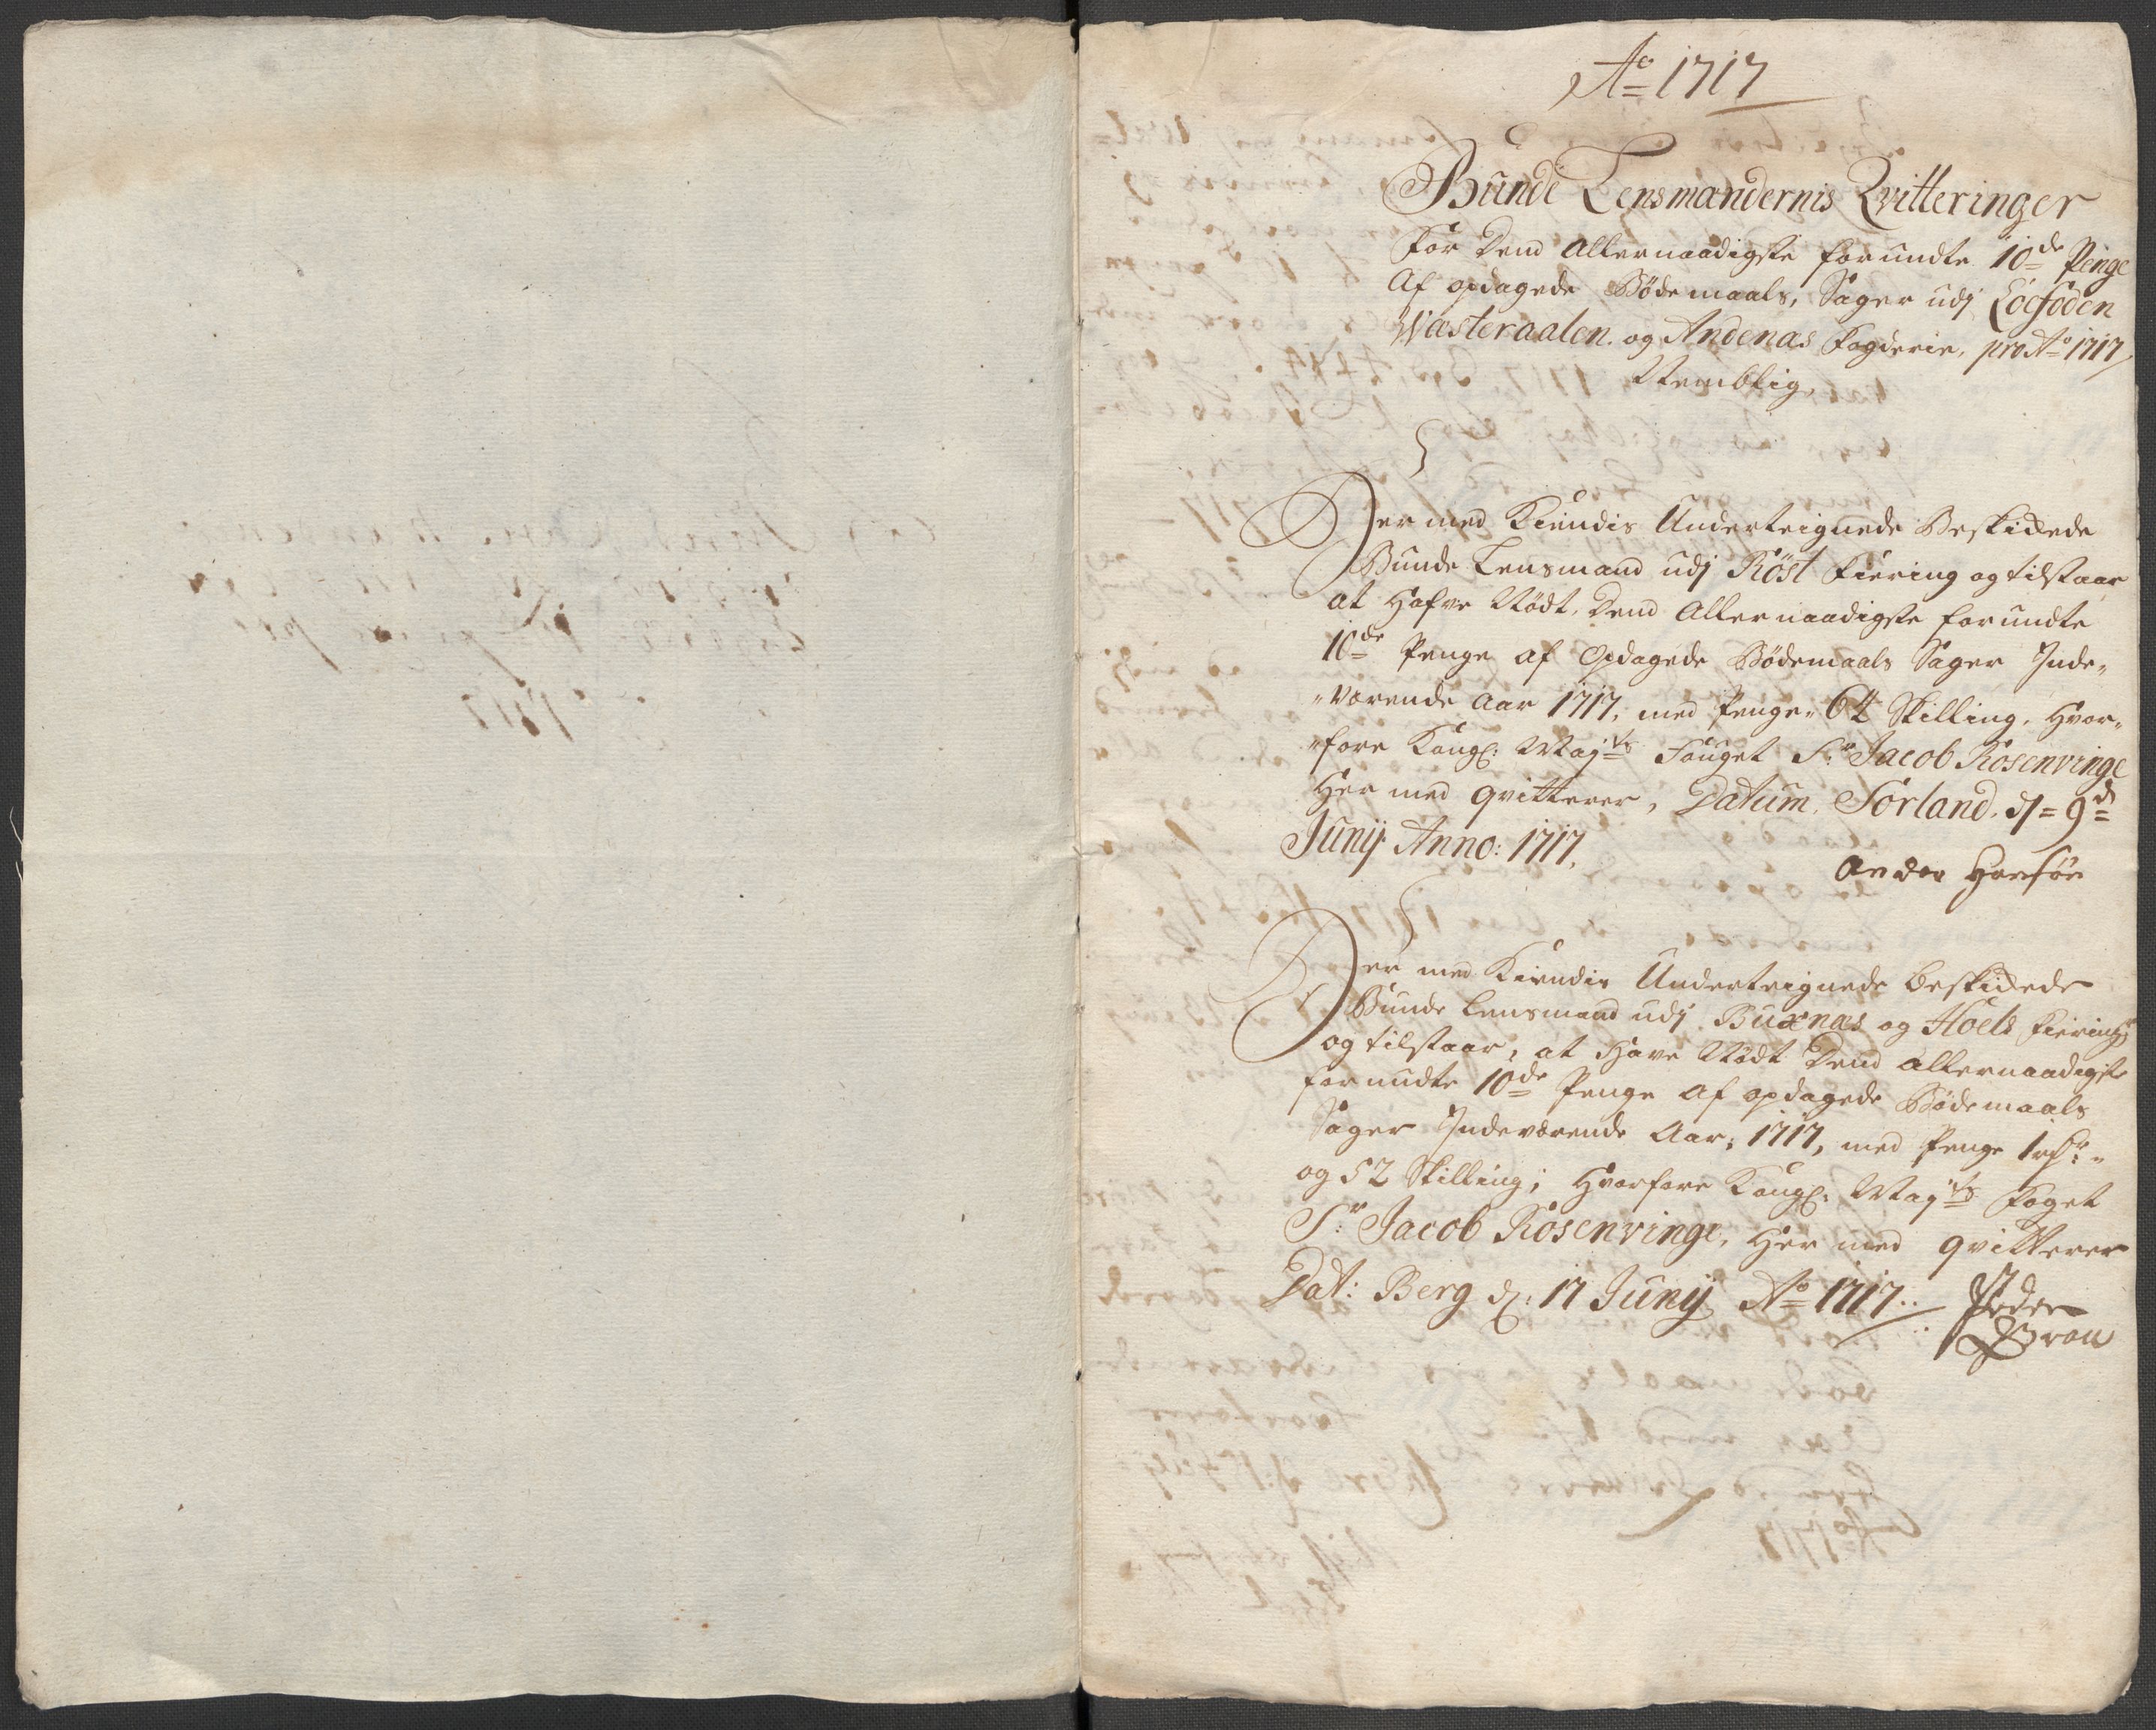 Ao 1717
Bunde Lensmandernis Qvitteringer
for dend allernaadigste forundte 10de Penge
Af opdagede Bødemaals, Sager udj Lofoden
Wæsteraalen og Andenæs Fogderie, pro Ao 1717
Nemblig,
Her med Kiendis Underteignede Beskickede
Bunde Lensmand udj Röst Fiering og tilstaar
at hafve Nødt, dend Allernaadigste forundte
10de Penge af Opdagede Bødemaals Sager Inde-
-værende Aar 1717, med Penge- 64 Skilling, hvor-
-fore Kongl: Mayts Fouget Sr Jacob Rosenvinge
her med qvitterer, Datum Sørland, d= 9de
Junij Anno: 1717.
Ander Hansøn
Her med Kiendis Underteignede beskickede
Bunde Lensmand udj Buxnæs og Hoels Fiering
og tilstaar, at have Nødt dend allernaadigste
forundte 10de Penge af opdagede Bødemaals
Sager Indeværende Aar, 1717, med Penge 1 rdr: -
og 52 Skilling; hvorfore Kongl: Mayts Foget
Sr: Jacob Rosenvinge, her med qvitterer
Dat: Berg d: 17 Junij Ao 1717.
Peder
Brou